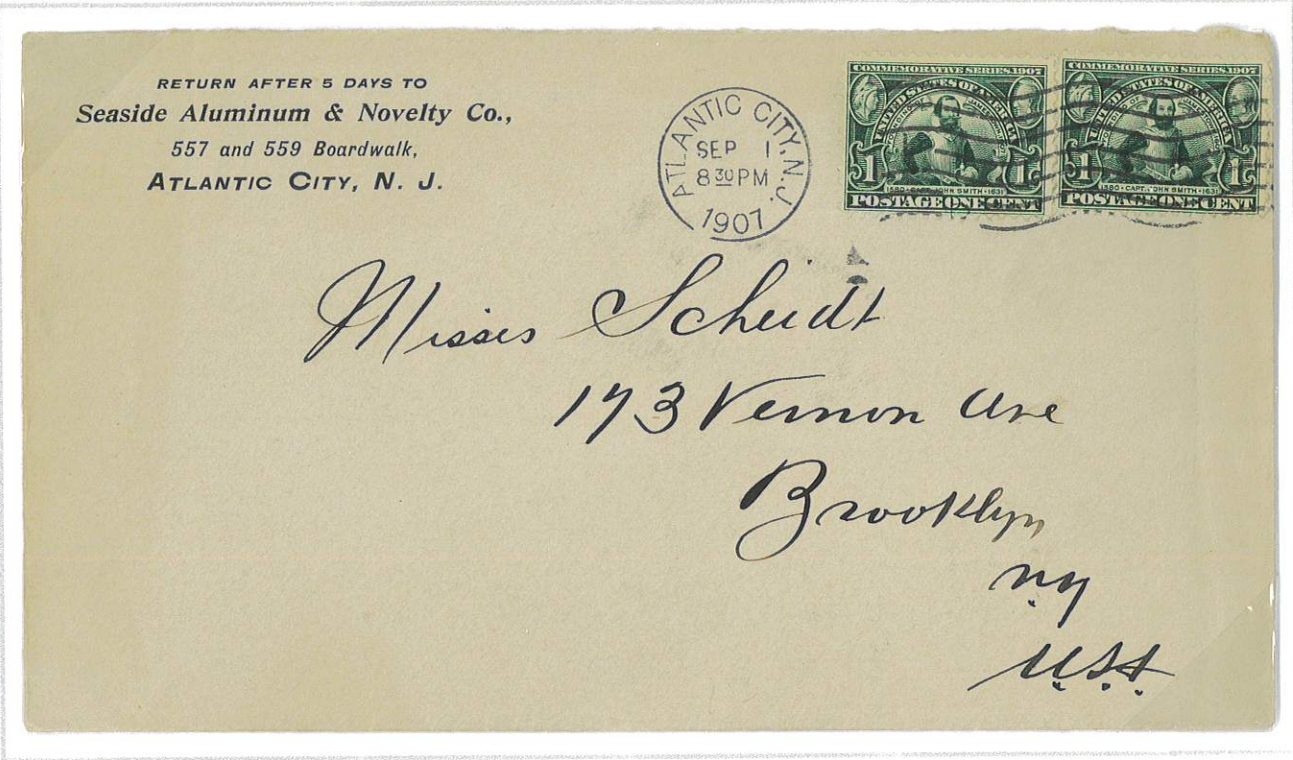 RETURN AFTER 5 DAYS TO
Seaside Aluminum & Novelty Co.,
557 and 559 Boardwalk,
ATLANTIC CITY, N. J.
ATLANTIC CITY, N.J.
SEP 1
8 30 PM
1907
COMMEMORATIVE SERIES 1907
UNITED STATES OF AMERICA
1 1
1580 • CAPT. JOHN SMITH • 1631
POSTAGE ONE CENT
COMMEMORATIVE SERIES 1907
UNITED STATES OF AMERICA
1 1
1580 • CAPT. JOHN SMITH • 1631
POSTAGE ONE CENT
Misses Scheidt
173 Vernon Ave
Brooklyn
N.Y
U.S.A.